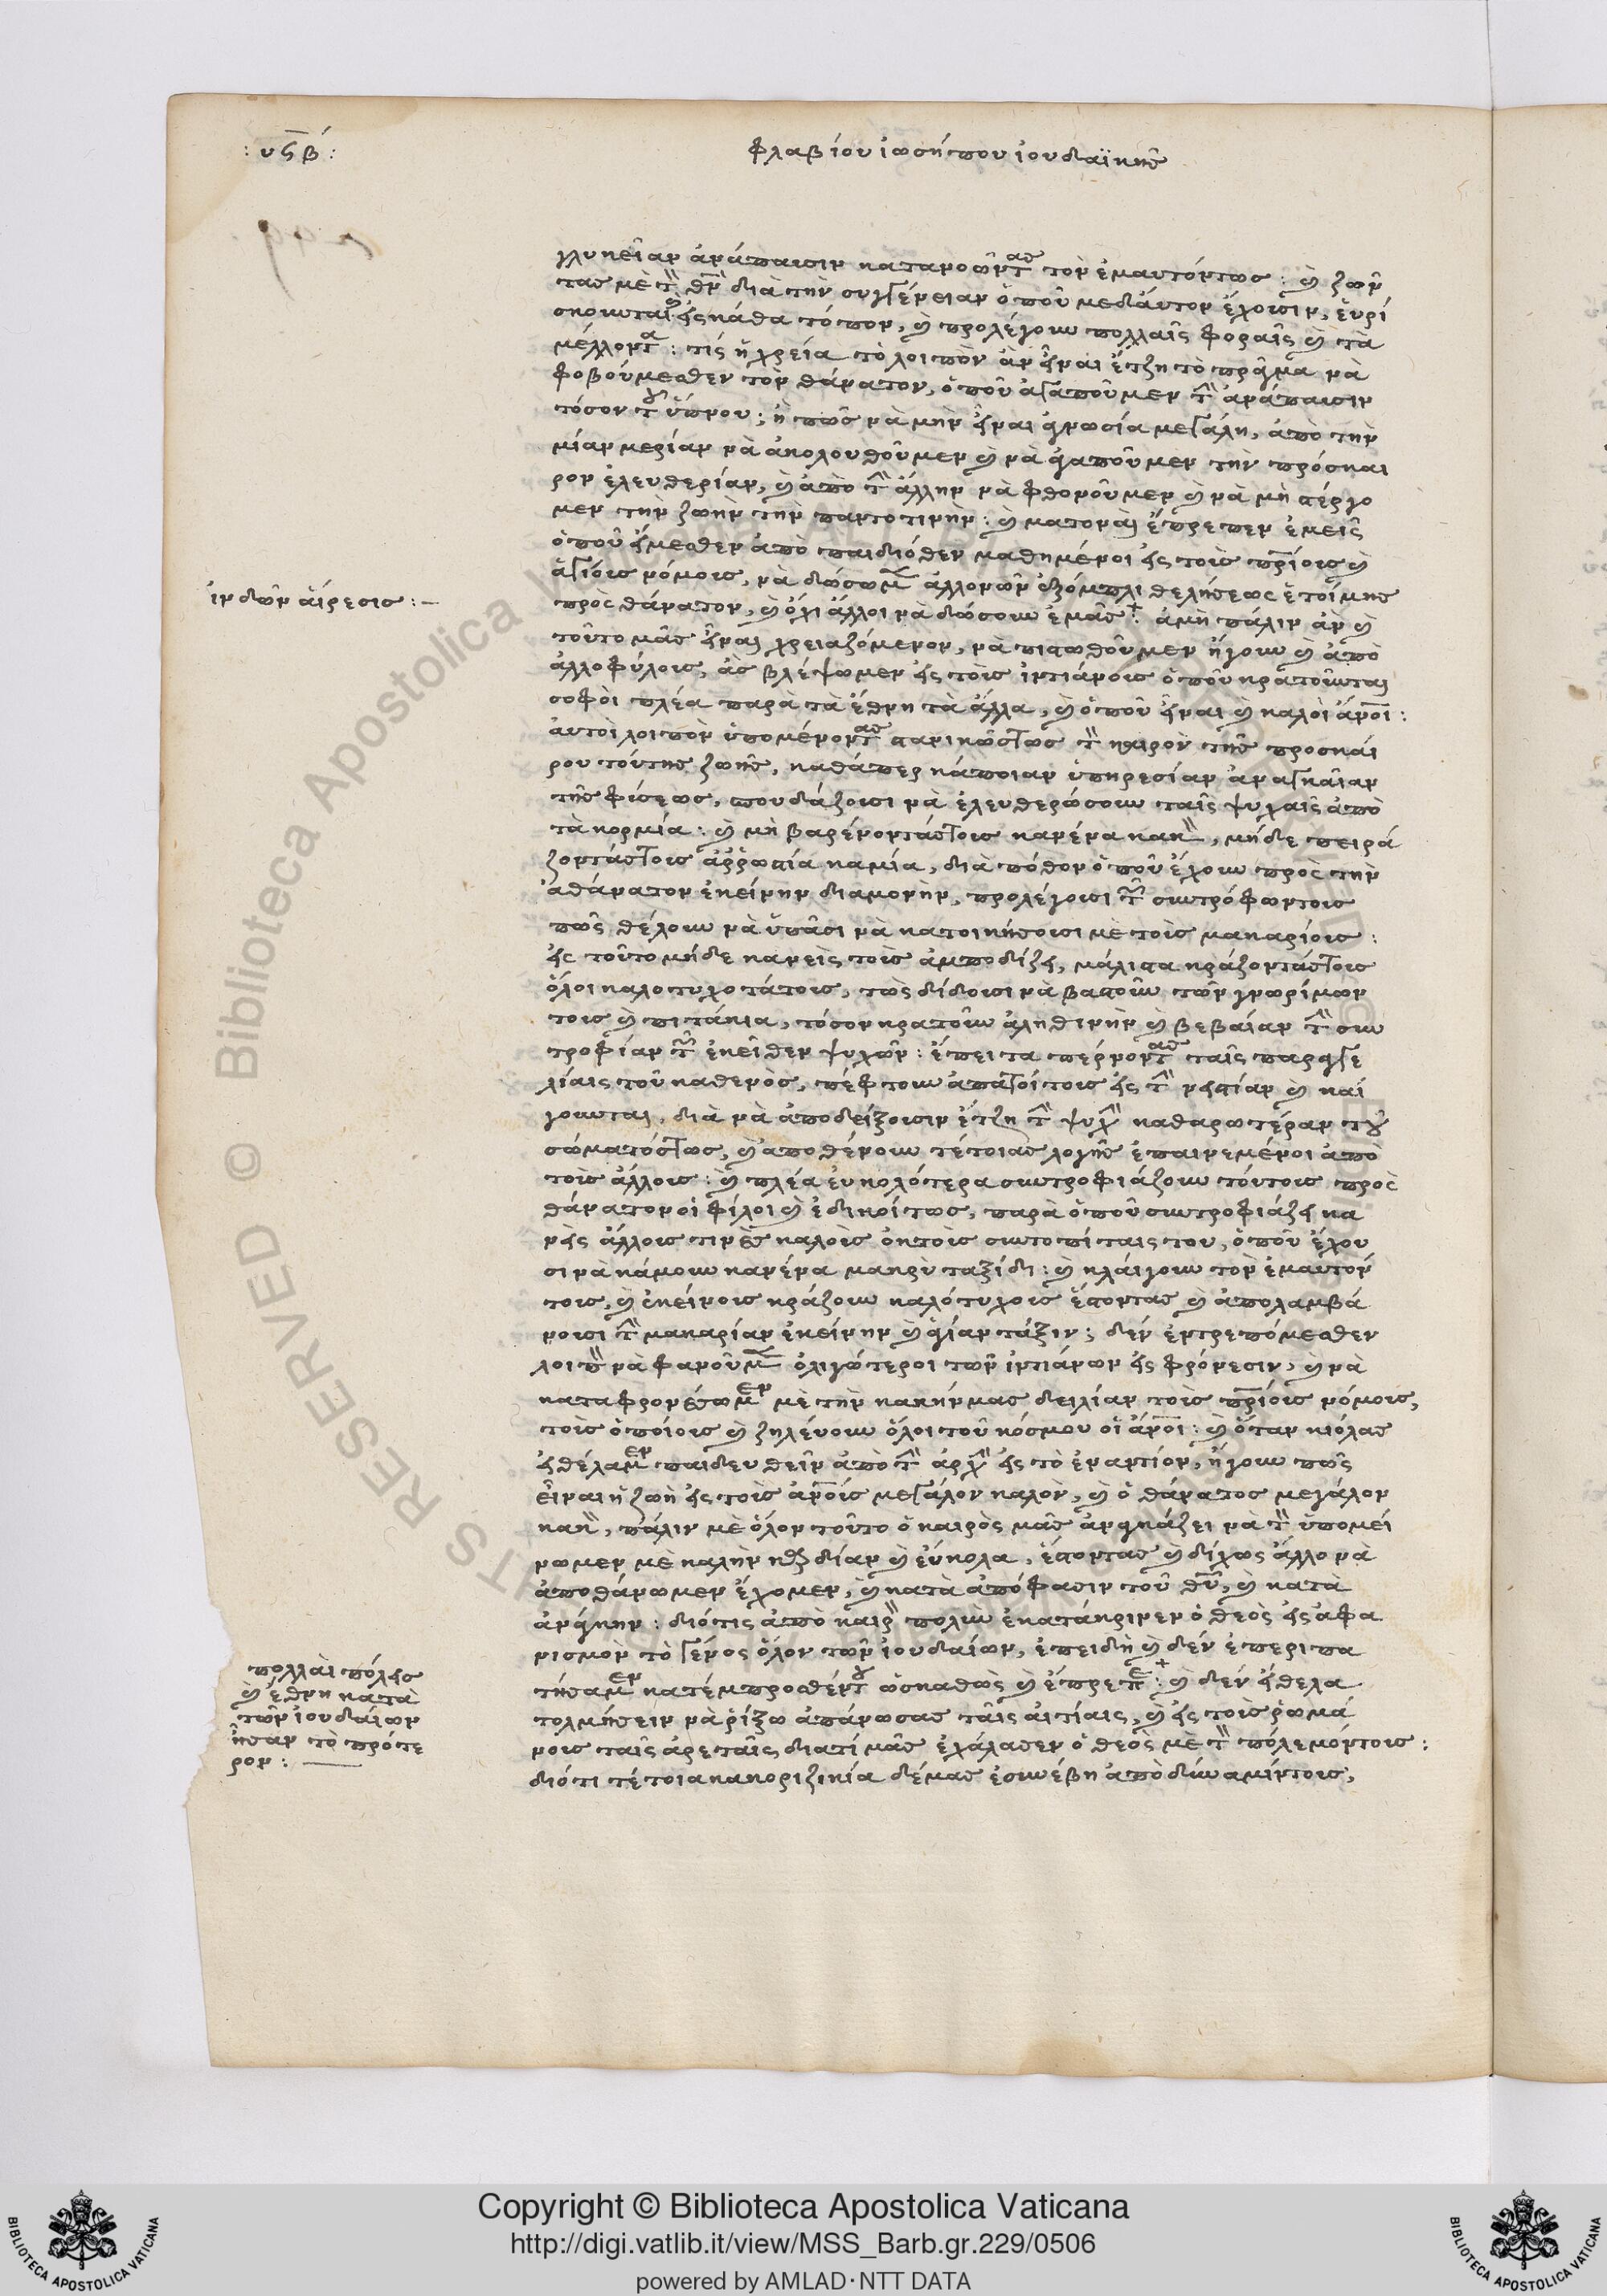 : υϛβ :
φλαβίου ἰωσήπου ἰουδαϊκῆς
γλυκεῖαν ἀνάπαυσιν κατανοῶντας τὸν ἐμαυτόντως : καὶ ζων
τας μὲ τὸν θν διὰ τὴν συγγένειαν ὁποῦ μεδἀυτον ἔχουσιν, ἑυρί
σκουνται εἰς κάθα τόπον, καὶ προλέγουν πολλαῖς φοραῖς καὶ τὰ
μέλλοντα : τίς ἡ χρεία τὸ λοιπὸν ἂν εἶναι ἔτζη τὸ πρᾶγμα νὰ
φοβούμεσθεν τὸν θάνατον, ὁποῦ ἀγαποῦμεν τὴν ἀνάπαυσιν
τόσον τοῦ ὕπνου ; ἢ πῶς νὰ μὴν εἶναι ἀγνωσία μεγάλη, ἀπὸ τὴν
μίαν μερίαν νὰ ἀκολουθοῦμεν καὶ νὰ ἀγαποῦμεν τὴν πρόσκαι
ρον ἐλευθερίαν, καὶ ἀπὸ τὴν ἄλλην νὰ φθονοῦμεν καὶ νὰ μὴ στέργο
μεν τὴν ζωὴν τὴν παντοτινήν : καὶ ματοναι ἔπρεπεν ἐμεῖς
ὁποῦ εἴμεσθεν ἀπὸ παιδιόθεν μαθημένοι εἰς τοὺς πρίους καὶ
ἁγίους νόμους, νὰ δώσωμεν ἀλλονῶν ἐξόμπλι θελήσεως ἑτοίμης
πρὸς θάνατον, καὶ ὄχι ἄλλοι νὰ δώσουν ἐμᾶς : ἀμὴ πάλιν ἂν καὶ
τοῦτο μᾶς εἶναι χρειαζόμενον, νὰ πιστωθοῦμεν ἤγουν καὶ ἀπὸ
ἀλλοφύλους, ἀς βλέψωμεν εἰς τοὺς ἰντιάνους ὁποῦ κρατοῦνται
σοφοὶ πλέα παρὰ τὰ ἔθνη τὰ ἄλλα, καὶ ὁποῦ εἶναι καὶ καλοὶ ἄνοι :
ἀυτοὶ λοιπὸν ὑπομένοντας στανικῶςτως τὸν καιρὸν τῆς προσκαί
ρου τούτης ζωῆς, καθάπερ κάποιαν ὑπηρεσίαν ἀναγκαίαν
τῆς φύσεως, σπουδάζουσι νὰ ἐλευθερώσουν ταῖς ψυχαῖς ἀπὸ
τὰ κορμία : καὶ μὴ βαρένοντάςτους κανένα κακὸν, μήδε πειρά
ζοντάςτους ἀρρωστία καμία, διὰ πόθον ὁποῦ ἔχουν πρὸς τὴν
ἀθάνατον ἐκείνην διαμονὴν, προλέγουσι τῶν συντρόφωντους
πῶς θέλουν νὰ ὑπᾶσι νὰ κατοικήσουσι μὲ τοὺς μακαρίους :
εἰς τοῦτο μήδε κανεὶς τοὺς ἀμποδίζει, μάλιστα κράζοντάςτους
ὅλοι καλοτυχοτάτους, τῶς δίδουσι νὰ βαστοῦν τῶν γνωρίμων
τους καὶ πιτάκια, τόσον κρατοῦν ἀληθινὴν καὶ βεβαίαν τὴν συν
τροφίαν τῶν ἐκεῖθεν ψυχῶν : ἔπειτα πέρνοντας ταῖς παραγγε
λίαις τοῦ καθενὸς, πέφτουν ἀπατοίτους εἰς τὴν νιστίαν καὶ καί
γουνται, διὰ νὰ ἀποδείξουσιν ἔτζη τὴν ψυχὴν καθαρωτέραν τοῦ
σώματόςτως, καὶ ἀποθένουν τέτοιας λογῆς ἐπαινεμένοι ἀπὸ
τοὺς ἄλλους : καὶ πλέα ἐυκολότερα συντροφιάζουν τούτους πρὸς
θάνατον οἱ φίλοι καὶ ἐδικοίτως, παρὰ ὁποῦ συντροφιάζει κα
νεὶς ἄλλους τινὲς καλοὺς ὀκτοὺς συντοπίταις του, ὁποῦ ἔχου
σι νὰ κάμουν κανένα μακρὺ ταξίδι : καὶ κλάιγουν τὸν ἐμαυτόν
τους, καὶ ἐκείνους κράζουν καλότυχους ἔστοντας καὶ ἀπολαμβά
νουσι τὴν μακαρίαν ἐκείνην καὶ ἁγίαν τάξιν ; δὲν ἐντρεπόμεσθεν
λοιπὸν νὰ φανοῦμεν ὀλιγώτεροι τῶν ἰντιάνων εἰς φρόνεσιν, καὶ νὰ
καταφρονέσωμεν μὲ τὴν κακήνμας δειλίαν τοὺς πρίους νόμους,
τοὺς ὁποίους καὶ ζηλέυουν ὅλοι τοῦ κόσμου οἱ ἄνοι : καὶ ὅταν κιόλας
εἰθέλαμεν παιδευθεῖν ἀπὸ τὴν ἀρχὴν εἰς τὸ ἐναντίον, ἤγουν πῶς
εἶναι ἡ ζωὴ εἰς τοὺς ἀνούς μεγάλον καλὸν, καὶ ὁ θάνατος μεγάλον
κακὸν, πάλιν μὲ ὅλον τοῦτο ὁ καιρὸς μᾶς ἀναγκάζει νὰ τὸν ὑπομεί
νωμεν μὲ καλὴν καρδίαν καὶ ἐύκολα, ἔστοντας καὶ δίχως ἄλλο νὰ
ἀποθάνωμεν ἔχομεν, καὶ κατὰ ἀπόφασιν τοῦ θυ, καὶ κατὰ
ἀνάγκην : διότις ἀπὸ καιρὸν πολὺν ἐκατάκρινεν ὁ θεὸς εἰς ἀφα
νισμὸν τὸ γένος ὅλον τῶν ἰουδαίων, ἐπειδὴ καὶ δὲν ἐπεριπα
τήσαμεν κατέμπροσθέντου ὡσκαθὼς καὶ ἔπρεπε : καὶ δὲν εἴθελα
τολμήσειν νὰ ῥίξω ἀπάνωσας ταῖς ἀιτίαις, καὶ εἰς τοὺς ῥωμά
νους ταῖς ἀρεταῖς, διατί μᾶς ἐχάλασεν ὁ θεὸς με τὸν πόλεμόντους :
διότι τέτοια κακοριζικία δέμας ἐσυνέβη ἀπὸ δύναμίντους,
ἰνδῶν ἁίρεσις : —
πολλαὶ πόλεις
καὶ ἔθνη κατὰ
τῶν ἰουδαίων
ἦσαν τὸ πρότε
ρον : —
Copyright © Biblioteca Apostolica Vaticana
http://digi.vatlib.it/view/MSS_Barb.gr.229/0506
powered by AMLAD·NTT DATA